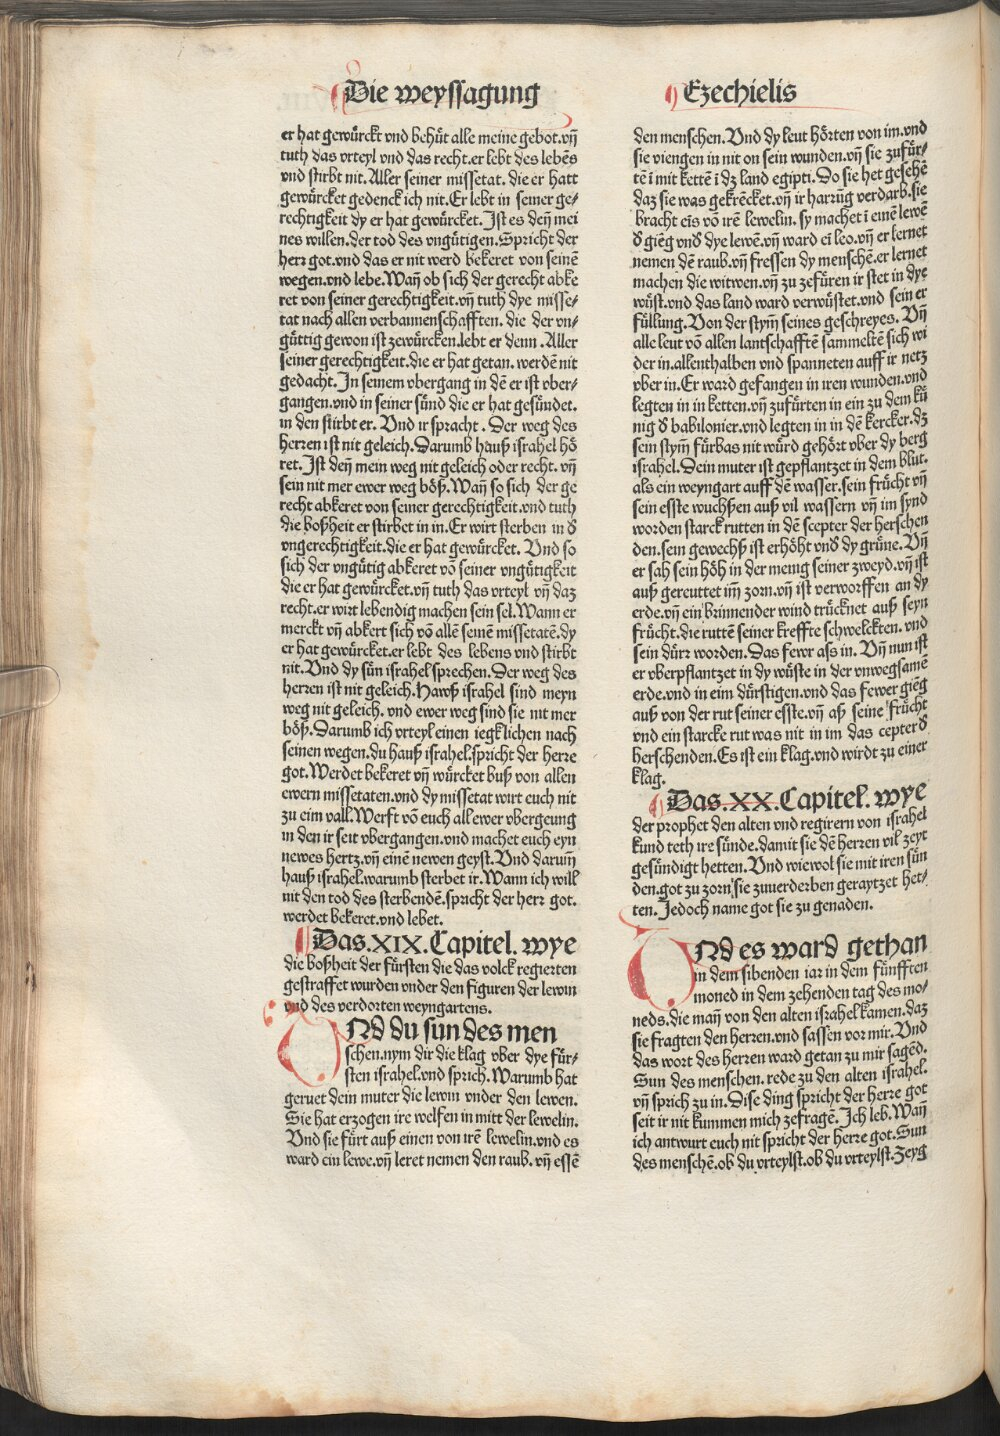 Die weyssagung
Ezechielis
er hat gewürckt vnd behüt alle meine gebot.vñ
tuth das vrteyl vnd das recht.er lebt des lebēs
vnd stirbt nit. Aller seiner missetat. die er hatt
gewürcket gedenck ich nit.Er lebt in seiner ge⸗
rechtigkeit dy er hat gewürcket. Jst es deñ mei
nes willen.der tod des vngütigen.Spricht der
herr got.vnd das er nit werd bekeret von seinē
wegen.vnd lebe.Wañ ob sich der gerecht abke
ret von seiner gerechtigkeit.vñ tuth dye misse⸗
tat nach allen verbannenschafften. die der vn⸗
güttig gewon ist zewürcken.lebt er denn .Aller
seiner gerechtigkeit.die er hat getan. werdē nit
gedacht. Jn seinem vbergang in dē er ist vber⸗
gangen.vnd in seiner sünd die er hat gesündet.
in den stirbt er. Vnd ir spracht . Der weg des
herren ist nit geleich. Darumb hauß israhel hö
ret. Jst deñ mein weg nit geleich oder recht. vñ
sein nit mer ewer weg böß.Wañ so sich der ge
recht abkeret von seiner gerechtigkeit.vnd tuth
die boßheit er stirbet in in.Er wirt sterben in d̕
vngerechtigkeit.die er hat gewürcket. Vnd so
sich der vngütig abkeret vō seiner vngütigkeit
die er hat gewürcket.vñ tuth das vrteyl vñ daz
recht.er wirt lebendig machen sein sel.Wann er
merckt vñ abkert sich vō allē seinē missetatē.dy
er hat gewürcket.er lebt des lebens vnd stirbt
nit.Vnd dy sün israhel sprechen.Der weg des
herzen ist nit geleich.Hawß israhel sind meyn
weg nit geleich. vnd ewer weg sind sie nit mer
böß.Darumb ich vrteyl einen iegklichen nach
seinen wegen.du hauß israhel.spricht der herre
got.Werdet bekeret vñ würcket buß von allen
ewern missetaten.vnd dy missetat wirt euch nit
zu eim vall.Werft vō euch all ewer vbergeung
in den ir seit vbergangen.vnd machet euch eyn
newes hertz.vñ einē newen geyst.Vnd darum̄
hauß israhel.warumb sterbet ir.Wann ich will
nit den tod des sterbendē.spricht der herr got.
werdet bekeret.vnd lebet.
Das.XIX.Capitel. wye
die boßheit der fürsten die das volck regierten
gestraffet wurden vnder den figuren der lewin
vnd des verdorten weyngartens.
VNd du sun des men
schen.nym dir die klag vber dye für⸗
sten israhel.vnd sprich.Warumb hat
geruet dein muter die lewin vnder den lewen.
Sie hat erzogen ire welfen in mitt der lewelin.
Vnd sie fürt auß einen von irē lewelin.vnd es
ward ein lewe.vñ leret nemen den raub. vñ essē
den menschen. Vnd dy leut hörten von im.vnd
sie viengen in nit on sein wunden.vñ sie zufür⸗
tē ī mit kettē ī dz land egipti.Do sie het gesehē
daz sie was gekrēcket.vñ ir harrūg verdarb.sie
bracht eīs vō irē lewelin. sy machet ī einē lewē
d̕ gieg vnd̕ dye lewē.vñ ward eī leo.vñ er lernet
nemen dē raub.vñ fressen dy menschē.er lernet
machen die witwen.vñ zu zefüren ir stet in dye
wüst.vnd das land ward verwüstet.vnd sein er
füllung.Von der stym̄ seines geschreyes. Vñ
alle leut vō allen lantschafftē sammeltē sich wi
der in.allenthalben vnd spanneten auff ir netz
vber in.Er ward gefangen in iren wunden.vnd
legten in in ketten.vñ zufürten in ein zu dem kü
nig d̕ babilonier.vnd legten in in dē kercker.dz
sein stym̄ fürbas nit würd gehört vber dy berg
israhel.Dein muter ist gepflantzet in dem blut.
als ein weyngart auff dē wasser.sein frücht vñ
sein esste wuchßen auß vil wassern vñ im synd
worden starck rutten in dē scepter der herschen
den.sein gewechß ist erhöht vnd̕ dy grüne.Vñ
er sah sein höh in der menig seiner zweyd.vñ ist
auß gereuttet im̄ zorn.vñ ist verworffen an dy
erde.vñ ein brinnender wind trücknet auß seyn
frücht.die ruttē seiner kreffte schwelckten. vnd
sein dürr worden.Das fewr ass in. Vñ nun ist
er vberpflantzet in dy wüste in der vnwegsamē
erde.vnd in eim dürstigen.vnd das fewer gieg
auß von der rut seiner esste.vñ aß seine frücht
vnd ein starcke rut was nit in im das cepter d̕
herschenden.Es ist ein klag.vnd wirdt zu einer
klag.
Das.XX.Capitel. wye
der prophet den alten vnd regirern von israhel
kund teth ire sünde.damit sie dē herren vil zeyt
gesündigt hetten. Vnd wiewol sie mit iren sün
den.got zu zorn,sie zuuerderben geraytzet het⸗
ten. Jedoch name got sie zu genaden.
VNd es ward gethan
in dem sibenden iar in dem fünfften
moned in dem zehenden tag des mo⸗
neds.die mañ von den alten israhel kamen.daz
sie fragten den herren.vnd sassen vor mir. Vnd
das wort des herren ward getan zu mir sagēd.
Sun des menschen. rede zu den alten israhel.
vñ sprich zu in.Dise ding spricht der herre got
seit ir nit kummen mich zefragē. Jch leb.Wañ
ich antwurt euch nit spricht der herre got.Sun
des menschē.ob du vrteylst.ob du vrteylst.Zeyg